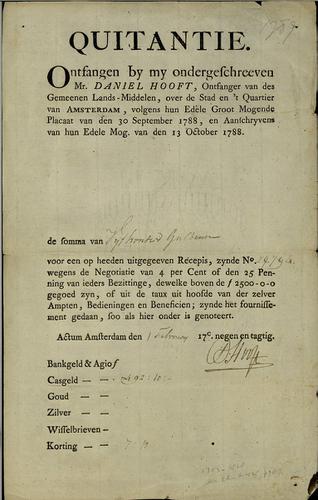 QUITANTIE.
Ontfangen by my ondergeschreeven
Mr. DANIEL HOOFT, Ontfanger van des
Gemeenen Lands-Middelen, over de Stad en 't Quartier
van AMSTERDAM, volgens hun Edele Groot Mogende
Placaat van den 30 September 1788, en Aanschryvens
van hun Edele Mog. van den 13 October 1788.
de somma van Vyfhonderd Guldens
voor een op heeden uitgegeeven Recepis, zynde No.
wegens de Negotiatie van 4 per Cent of den 25 Pen-
ning van ieders Bezittinge, dewelke boven de ƒ 2500-0-0
gegoed zyn, of uit de taux uit hoofde van der zelver
Ampten, Bedieningen en Beneficien; zynde het fournisse-
ment gedaan, soo als hier onder is genoteert.
Actum Amsterdam den 1 February 17c. negen en tagtig.
D Hooft
Bankgeld & Agio ƒ
Casgeld — — 492:10:-
Goud — —
Zilver — —
Wisselbrieven —
Korting — — 7:10